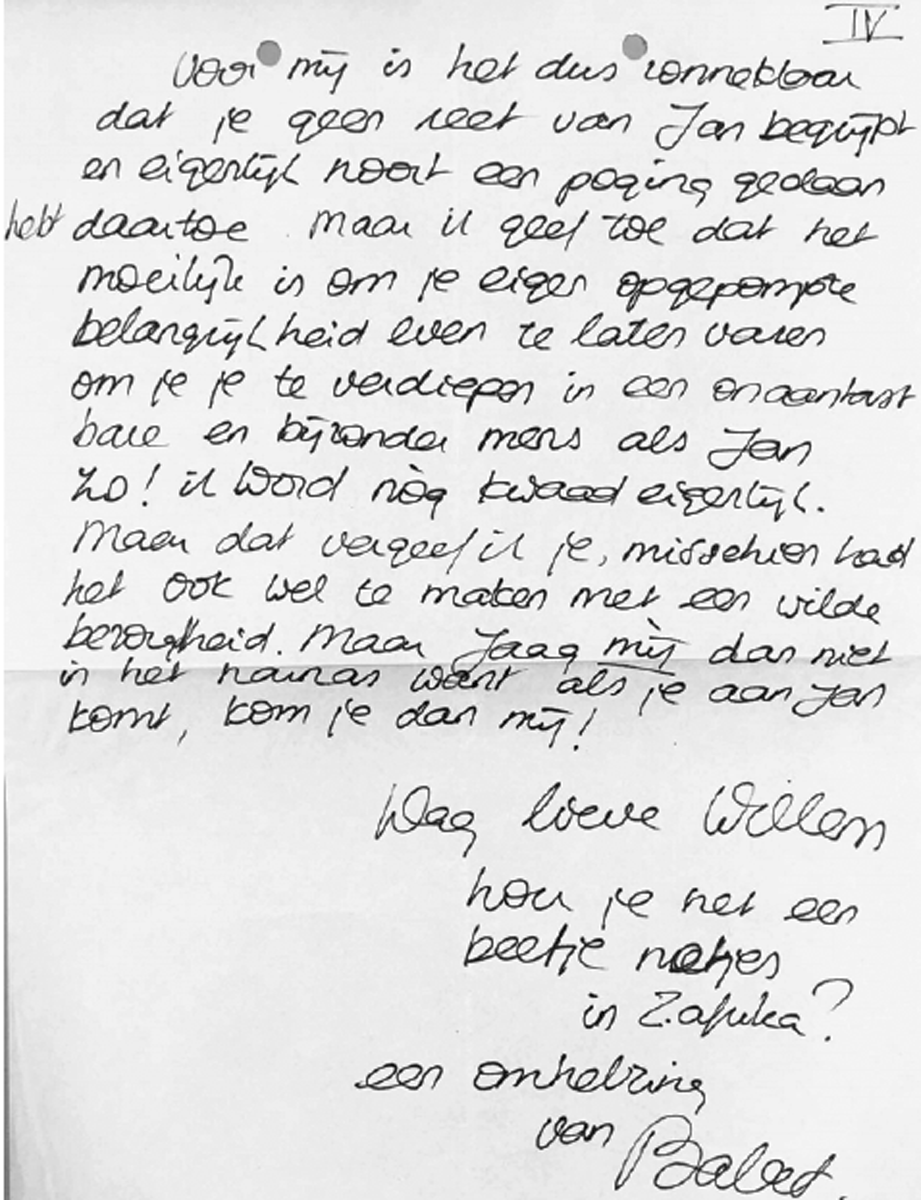 IV
Voor mij is het dus zonneklaar
dat je geen reet van Jan begrijpt
en eigenlijk nooit een poging gedaan
hebt daartoe. Maar ik geef toe dat het
moeilijk is om je eigen opgepompte
belangrijkheid even te laten varen
om je je te verdiepen in een onaantast
bare en bijzonder mens als Jan
Zo! ik word nòg kwaad eigenlijk.
Maar dat vergeef ik je, misschien had
het ook wel te maken met een wilde
bezorgdheid. Maar Jaag mij dan niet
in het harnas want als je aan Jan
komt, kom je aan mij!
Dag lieve Willem
hou je het een
beetje netjes
in Z.afrika?
een omhelzing
van Babet.